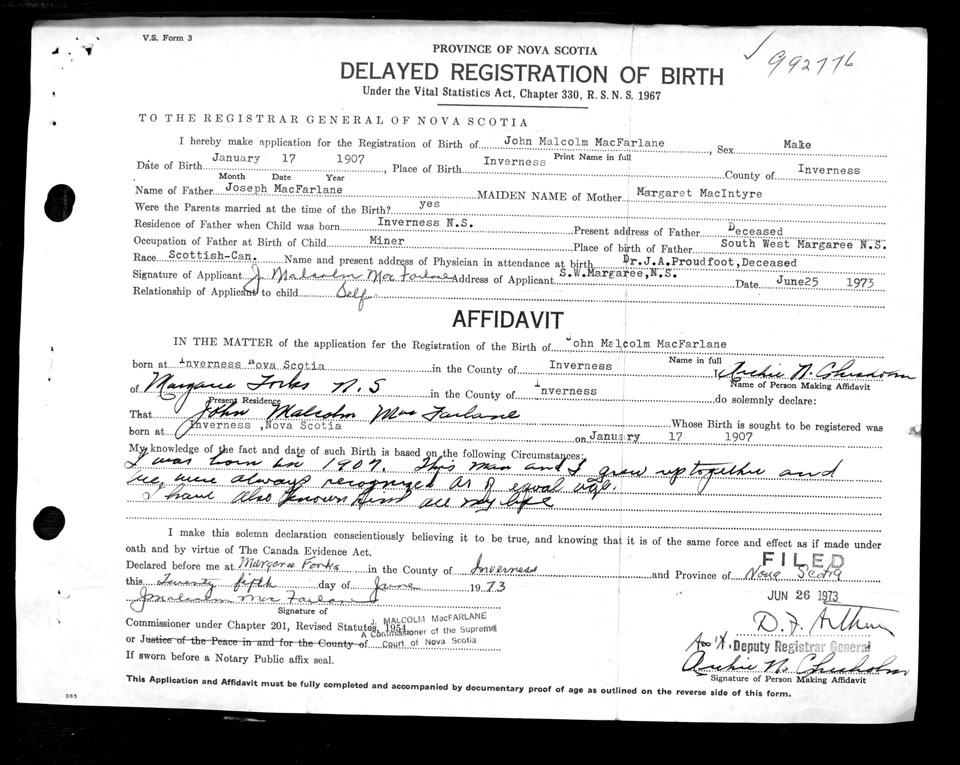 V.S. Form 3
992776
PROVINCE OF NOVA SCOTIA
DELAYED REGISTRATION OF BIRTH
Under the Vital Statistics Act, Chapter 330, R.S.N.S. 1967
TO THE REGISTRAR GENERAL OF NOVA SCOTIA
I hereby make application for the Registration of Birth of John Malcolm MacFarlane, Sex Make
Print Name in full
Date of Birth January 17 1907, Place of Birth Inverness County of Inverness
Month Date Year
Name of Father Joseph MacFarlane MAIDEN NAME of Mother Margaret MacIntyre
Were the Parents married at the time of the Birth? yes
Residence of Father when Child was born Inverness N.S. Present address of Father Deceased
Occupation of Father at Birth of Child Miner Place of birth of Father South West Margaree N.S.
Race Scottish-Can. Name and present address of Physician in attendance at birth Dr.J.A.Proudfoot,Deceased
Signature of Applicant J. Malcolm MacFarlane Address of Applicant S.W.Margaree,N.S. Date June25 1973
Relationship of Applicant to child Self
AFFIDAVIT
IN THE MATTER of the application for the Registration of the Birth of John Malcolm MacFarlane
Name in full
born at Inverness Nova Scotia in the County of Inverness I Archie N. Chisholm
Name of Person Making Affidavit
of Margaree Forks N.S in the County of Inverness do solemnly declare:
Present Residence
That John Malcolm MacFarlane Whose Birth is sought to be registered was
born at Inverness ,Nova Scotia on January 17 1907
My knowledge of the fact and date of such Birth is based on the following Circumstances:
I was born in 1907. This man and I grew up together and
we were always recognized as of equal age.
I have also known him all my life
I make this solemn declaration conscientiously believing it to be true, and knowing that it is of the same force and effect as if made under
oath and by virtue of The Canada Evidence Act.
Declared before me at Margaree Forks in the County of Inverness and Province of Nova Scotia
FILED
this Twenty fifth day of June 1973
JUN 26 1973
J Malcolm MacFarlane
Signature of
D. F. Arthur
Commissioner under Chapter 201, Revised Statutes, 1954
J. MALCOLM MacFARLANE
A Commissioner of the Supreme
Court of Nova Scotia
or Justice of the Peace in and for the County of
Deputy Registrar General
If sworn before a Notary Public affix seal.
Archie N. Chisholm
Signature of Person Making Affidavit
This Application and Affidavit must be fully completed and accompanied by documentary proof of age as outlined on the reverse side of this form.
385